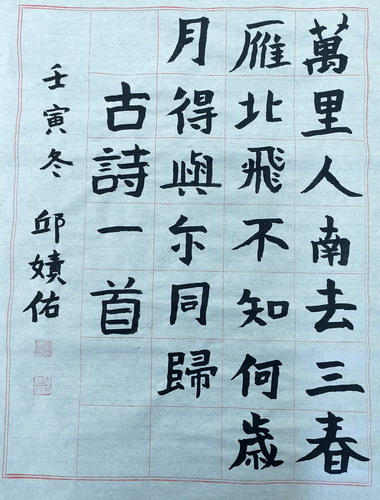 萬里人南去三春
雁北飛不知何歲
月得與尓同歸
古詩一首
壬寅冬 邱嫧佑